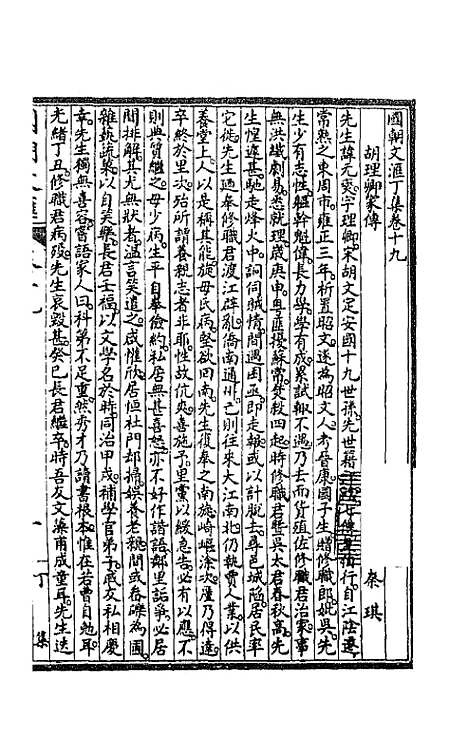 國朝文滙丁集卷十九
胡理卿家傳
秦琪
先生諱元奕字理卿宋胡文定安國十九世孫先世籍行自江陰遷
常熟之東周市雍正三年析置昭文遂為昭文人考晉康國子生贈修職郎妣吳先
生少有志性軀幹魁偉長力學學有成累試報不遇乃去而貨殖佐修職君治家事
無洪纖劇易悉就理歲庚申粵匪擾蘇常焚敓四起時修職君暨吳太君春秋高先
生惶遽甚馳走烽火中詗伺賊情間遇困亟即走報或以計脫去尋邑城陷居民率
它徙先生迺奉修職君渡江辟亂僑南通州己則往來大江南北仍執賈人業以供
養堂上人以是稱其能旋毋氏病墊欲回南先生復奉之南旋崎嶇涂次廑乃得達
卒終於里次殆所謂養親志者非耶性故伉爽喜施予里黨以緩急告必有以應不
則典質繼之毋少病生平自奉儉約私居無甚喜怒亦不好作諧語鄰里訟爭必居
間排解其尤無狀者溫言笑遣之咸惟欣居恒杜門卻掃娛養老親間或舂磔為圃
雜蓺蔬藥以自笑樂長君壬福以文學名於時同治甲戌補學官弟子戚友私相慶
幸先生獨無喜容嘗語家人曰科第不足重然秀才乃讀書根本惟在若曹自勉耳
光緒丁丑修職君病殁先生哀毀甚癸巳長君繼卒時吾友文藻甫成童耳先生迭
一
丁集